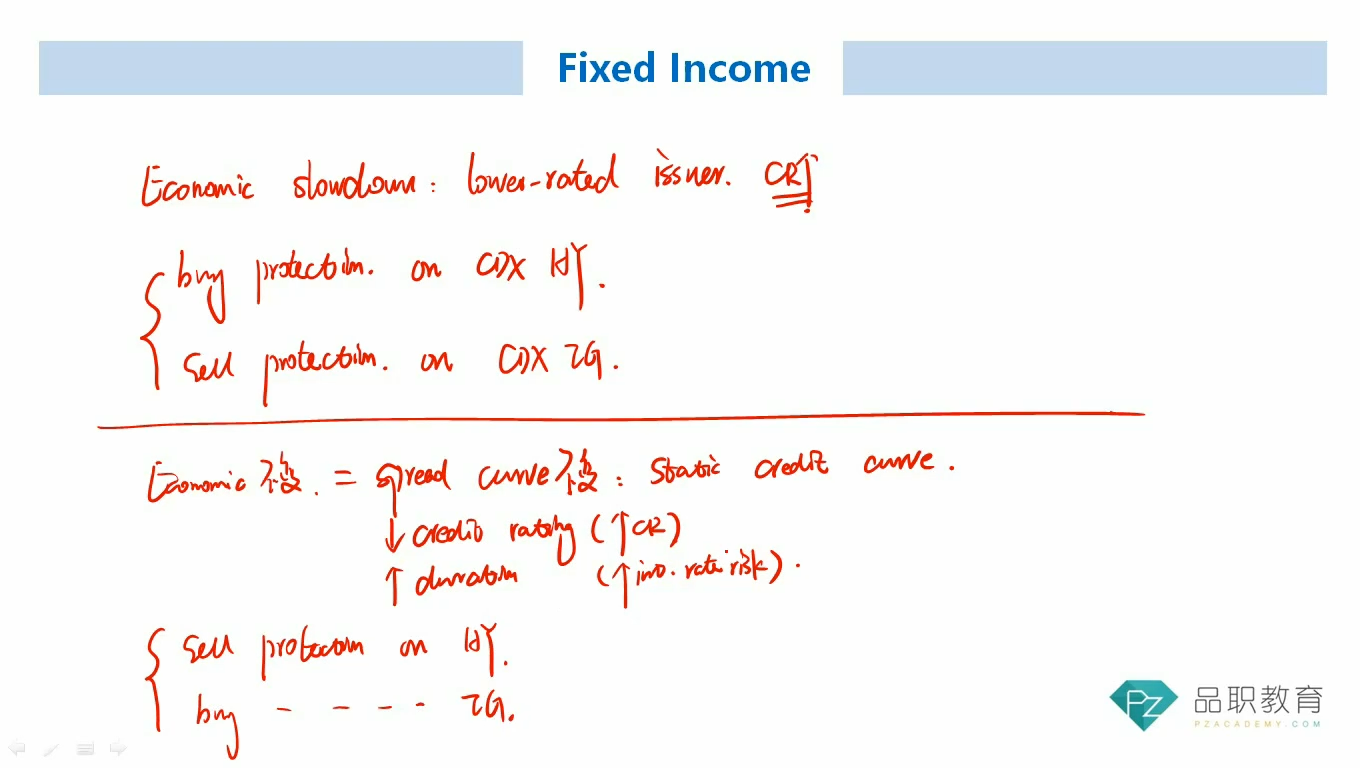 Fixed Income
Economic slowdown: lower-rated issuer. CR↑
buy protection. on CDX HY.
Sell protection. on CDX IG.
Economic 不变. = spread curve 不变: static credit curve.
↓ credit rating (↑CR)
↑ duration (↑ int. rate risk).
Sell protection on HY.
buy - - - - IG.
PZ 品职教育
PZACADEMY.COM